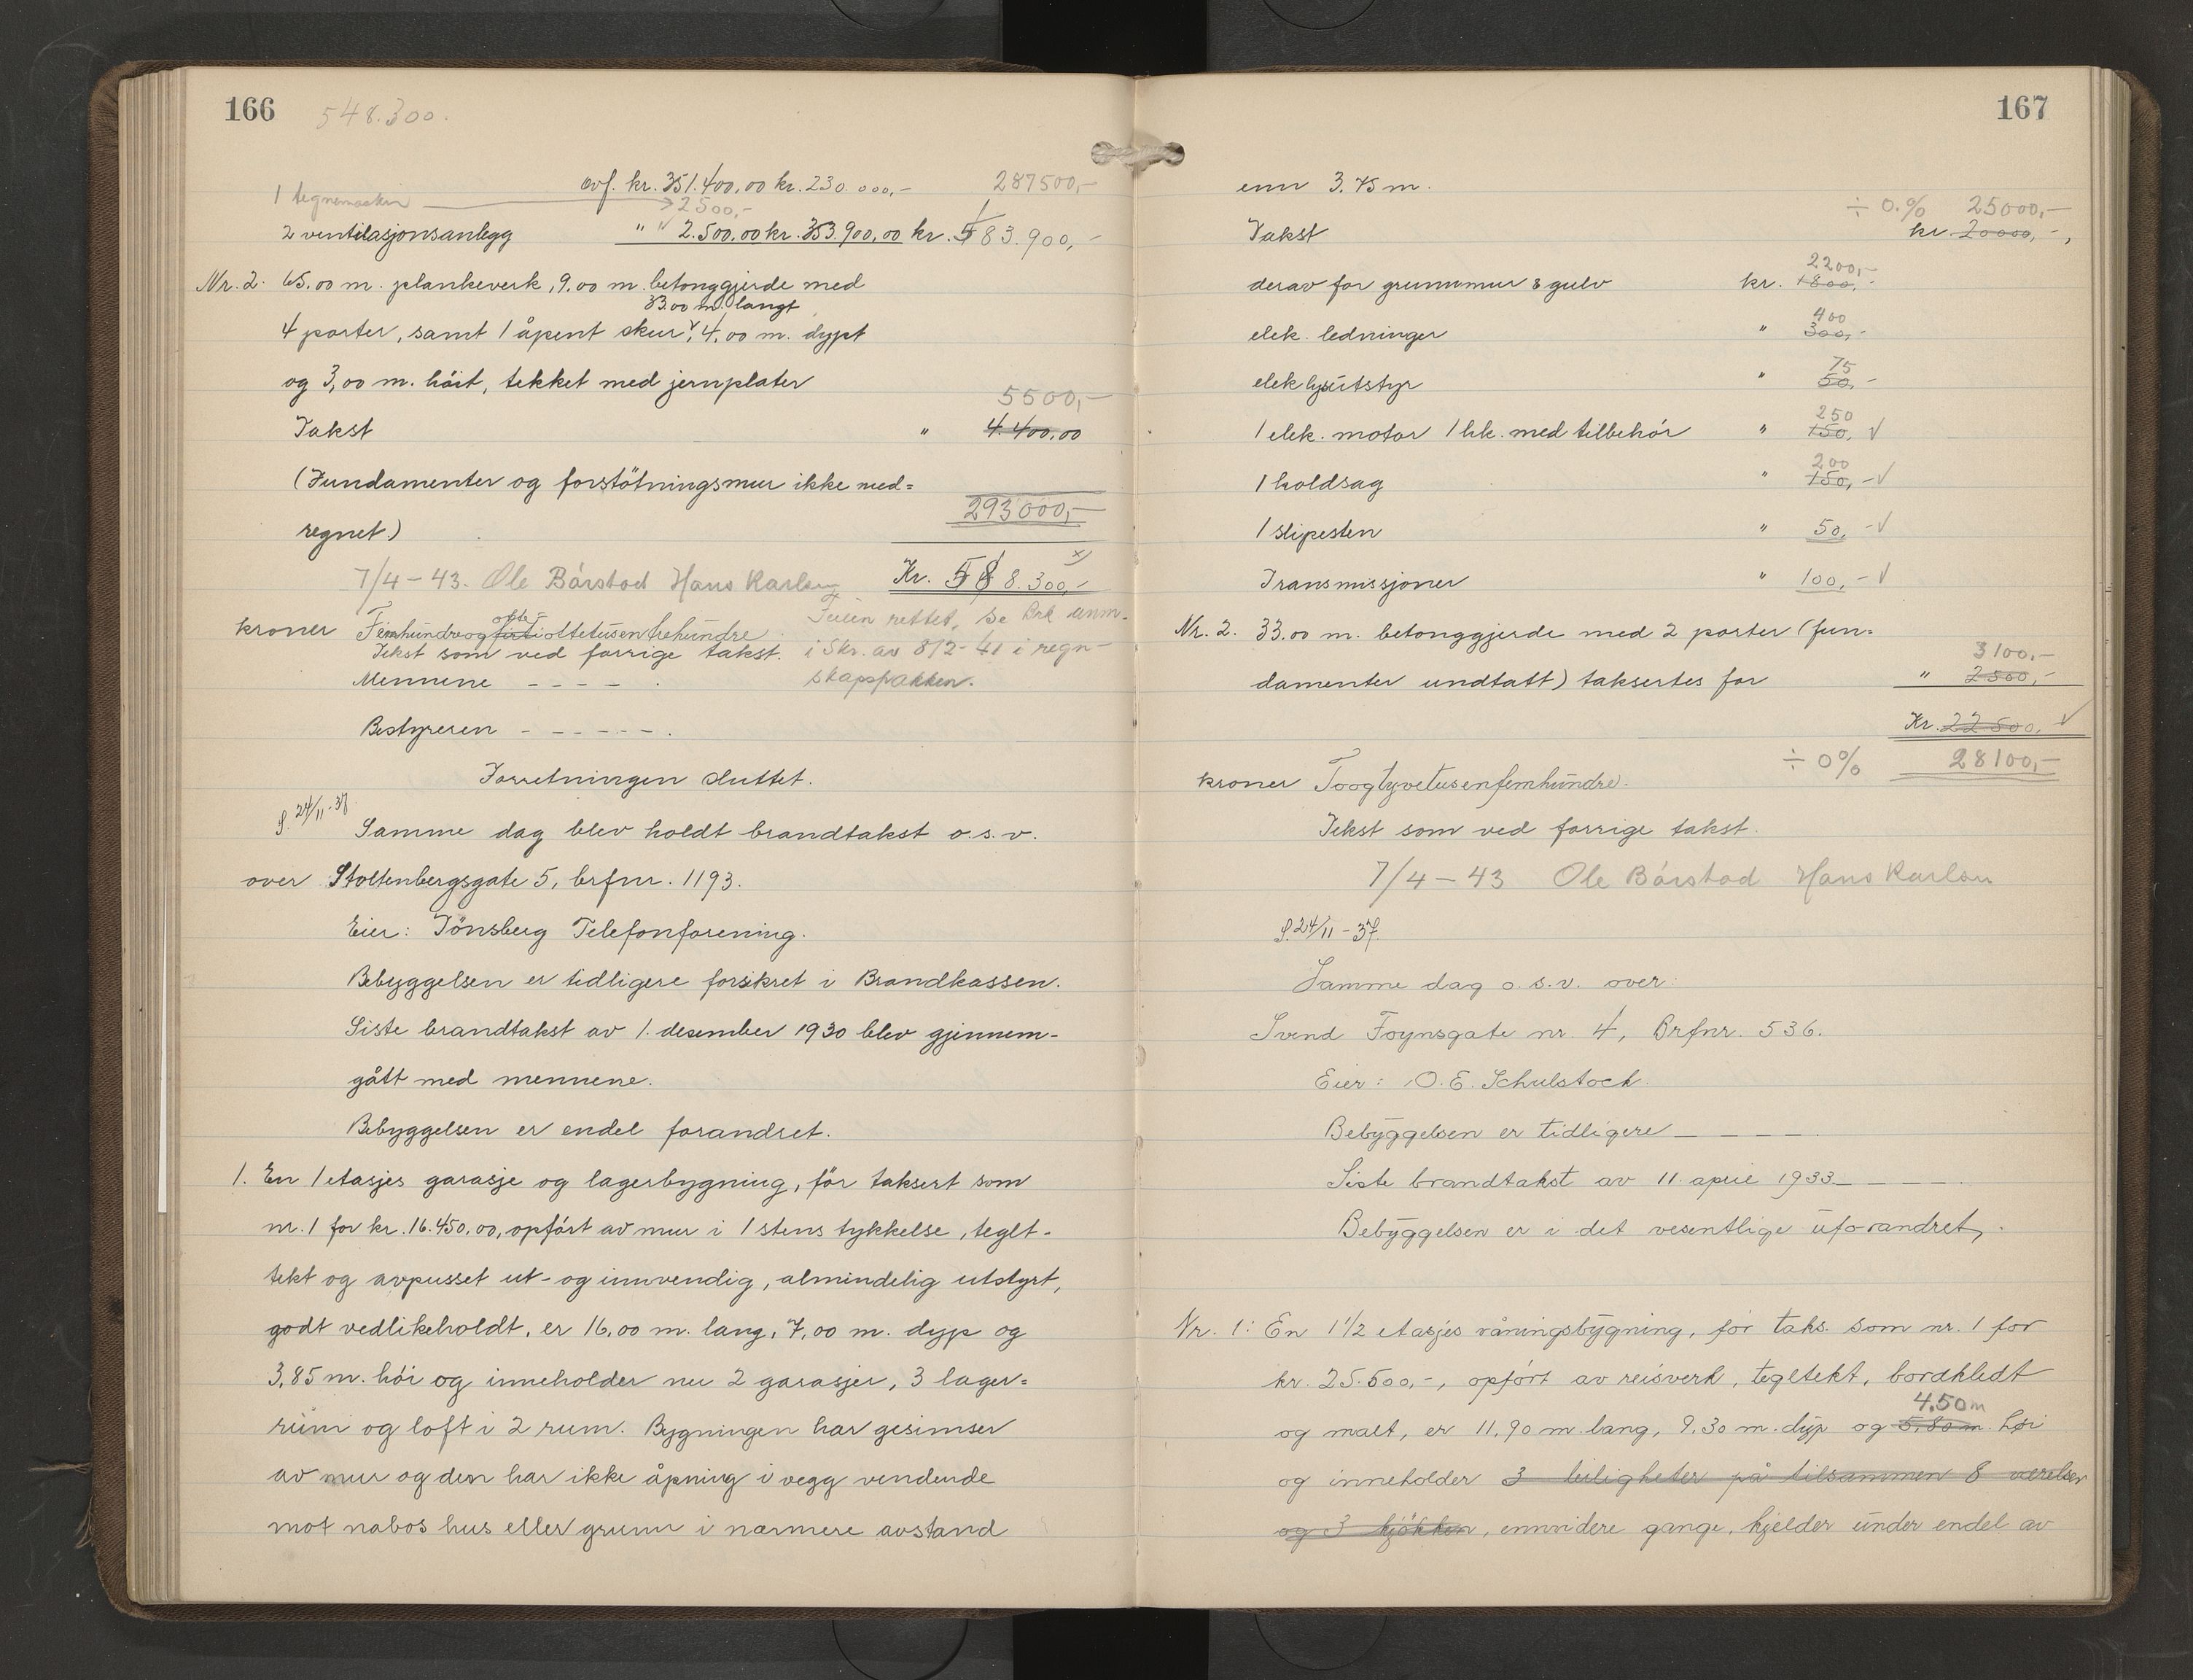 166
548.300.
ovf. kr. 351.400,00 kr. 230.000,- 287500,-
1 tegnemaskin 2500,-
2 ventilasjonsanlegg " " 2.500.00 kr. 353.900,00 kr. 583.900,-
Nr. 2. 65,00 m. plankeverk, 9.00 m. betonggjerde med
33.00 m. langt
4 porter, samt 1 åpent skur, 4,00 m. dypt
og 3,00 m. höit, tekket med jernplater
5500,-
Takst " 4.400,00
(Fundamenter og forstötningsmur ikke med=
293000,-
regnet.)
7/4-43. Ole Bárstad Hans Karlsen Kr. 588.300,- x)
kroner Femhundreogfirtiottetusentrehundre
otte
Feien rettet, se Brk anm.
Tekst som ved forrige takst. i Skr. av 8/2-41 i regn-
Mennene - - - - . skapspakken.
Bestyreren - - - - - - .
Forretningen sluttet.
S. 24/11-37
Samme dag blev holdt brandtakst o.s.v.
over Stoltenbergsgate 5, brfnr. 1193.
Eier: Tönsberg Telefonforening.
Bebyggelsen er tidligere forsikret i Brandkassen.
Siste brandtakst av 1. desember 1930 blev gjennem-
gått med mennene.
Bebyggelsen er endel forandret.
1. En 1 etasjes garasje og lagerbygning, för taksert som
nr. 1 for kr. 16.450,00, opfört av mur i 1 stens tykkelse, teglt-
tekt og avpusset ut- og innvendig, almindelig utstyrt,
godt vedlikeholdt, er 16,00 m. lang, 7,00 m. dyp og
3,85 m. höi og inneholder nu 2 garasjer, 3 lager=
rum og loft i 2 rum. Bygningen har gesimser
av mur og den har ikke åpning i vegg vendende
mot nabos hus eller grunn i nærmere avstand
167
enn 3.75 m.
÷ 0.% 25000,-
Takst kr 20000,-,
2200,-
derav for grunnmur & gulv kr. 1800,-
400
elek. ledninger " 300,-
75
elek lysutstyr " 50,-
250
1 elek. motor 1 hk. med tilbehör " 150, √
200
1 holdsag " 150,- √
1 slipesten " 50,- √
Transmissjoner " 100,- √
Nr. 2. 33.00 m. betonggjerde med 2 porter (fun=
3100,-
damenter undtatt) taksertes for " 2500,-
Kr. 22500, √
÷ 0% 28100,-
kroner Toogtyvetusenfemhundre.
Tekst som ved forrige takst.
7/4-43 Ole Bárstad Hans Karlsen
S. 24/11-37.
Samme dag o.s.v. over:
Svend Foynsgate nr. 4, Brfnr. 536.
Eier: O.E. Schulstock.
Bebyggelsen er tidligere - - - - .
Siste brandtakst av 11. april 1933 - - - - .
Bebyggelsen er i det vesentlige uforandret.
Nr. 1: En 1 1/2 etasjes våningsbygning, för taks. som nr. 1 for
kr. 25.500,-, opfört av reisverk, tegltekt, bordkledt
4.50m
og malt, er 11,90 m. lang, 9.30 m. dyp og 5,80 m. höi
og inneholder 3 leiligheter på tilsammen 8 værelser
og 3 kjökken, ennvidere gange, kjelder under endel av